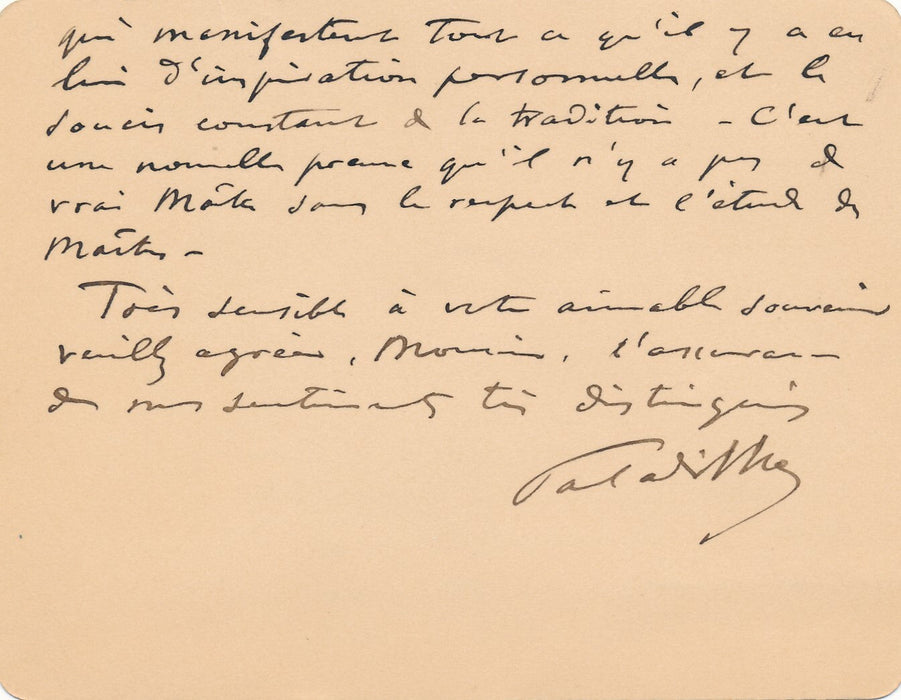 qui manifestent tout ce qu'il y a en
lui d'inspiration personnelle, et le
soucis constant de la tradition - C'est
une nouvelle preuve qu'il n'y a pas de
vrai Maître sans le respect et l'étude des
Maîtres -
Très sensible à votre aimable souvenir
veuillez agréer, Monsieur, l'assurance
de mes sentiments très distingués
Paladilhe